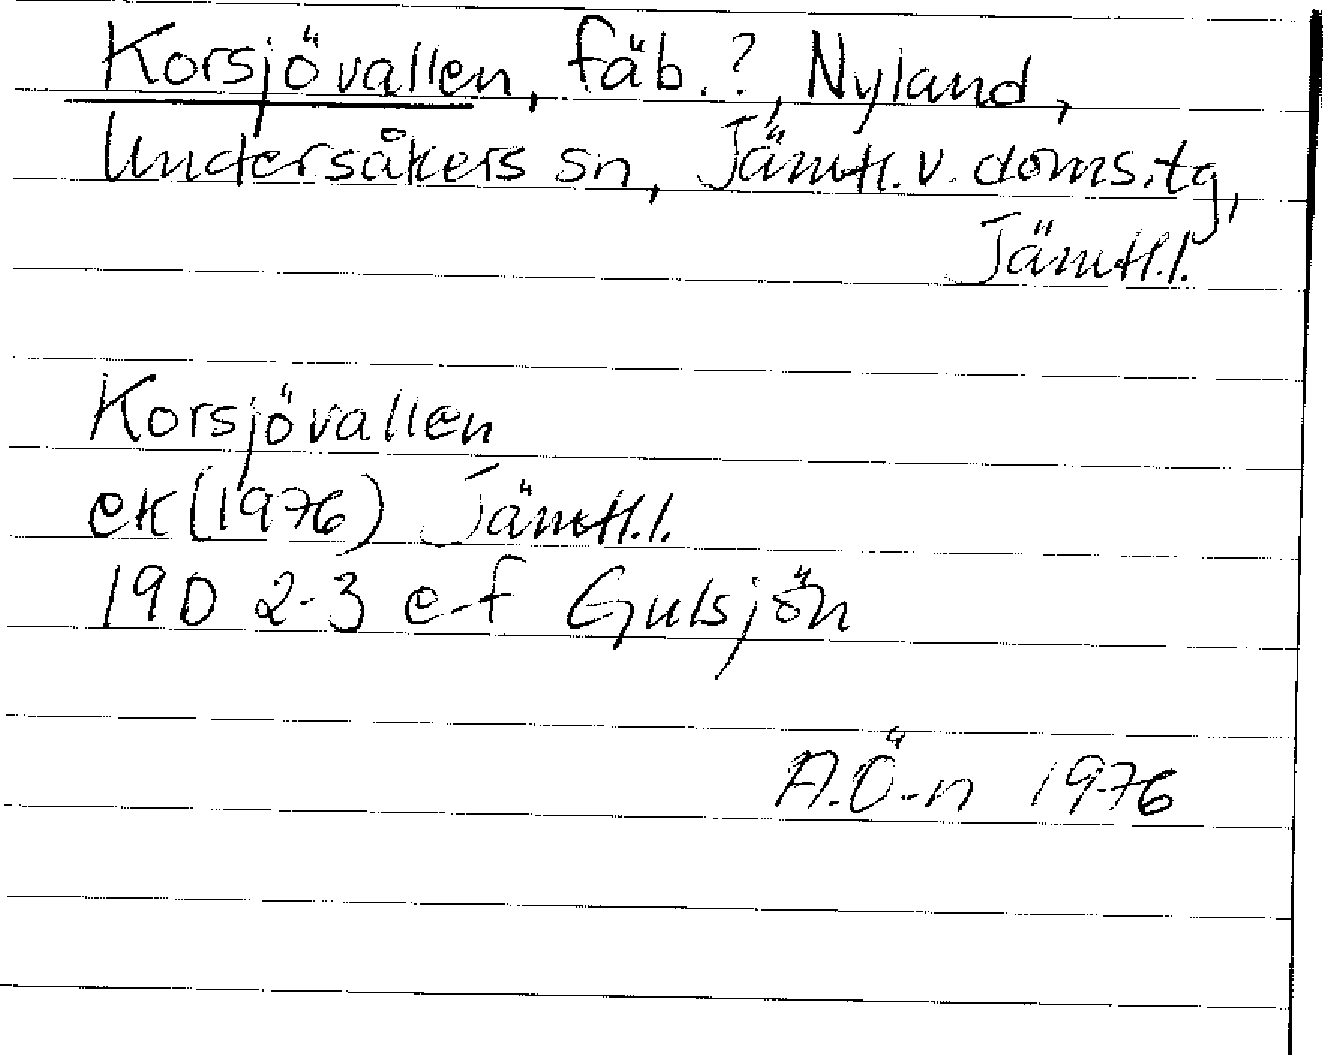 Korsjövallen, fäb.?, Nyland,
Undersåkers sn, Jämtl. v. doms.tg,
Jämtl.l.
Korsjövallen
ek (1976) Jämtl.l.
19D 2-3 e-f Gulsjön
A.Ö-n 1976